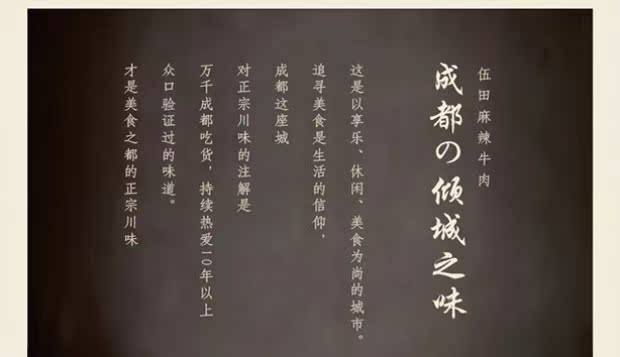 伍田麻辣牛肉
成都の倾城之味
这是以享乐、休闲、美食为尚的城市。
追寻美食是生活的信仰，
成都这座城
对正宗川味的注解是
万千成都吃货，持续热爱10年以上
众口验证过的味道。
才是美食之都的正宗川味